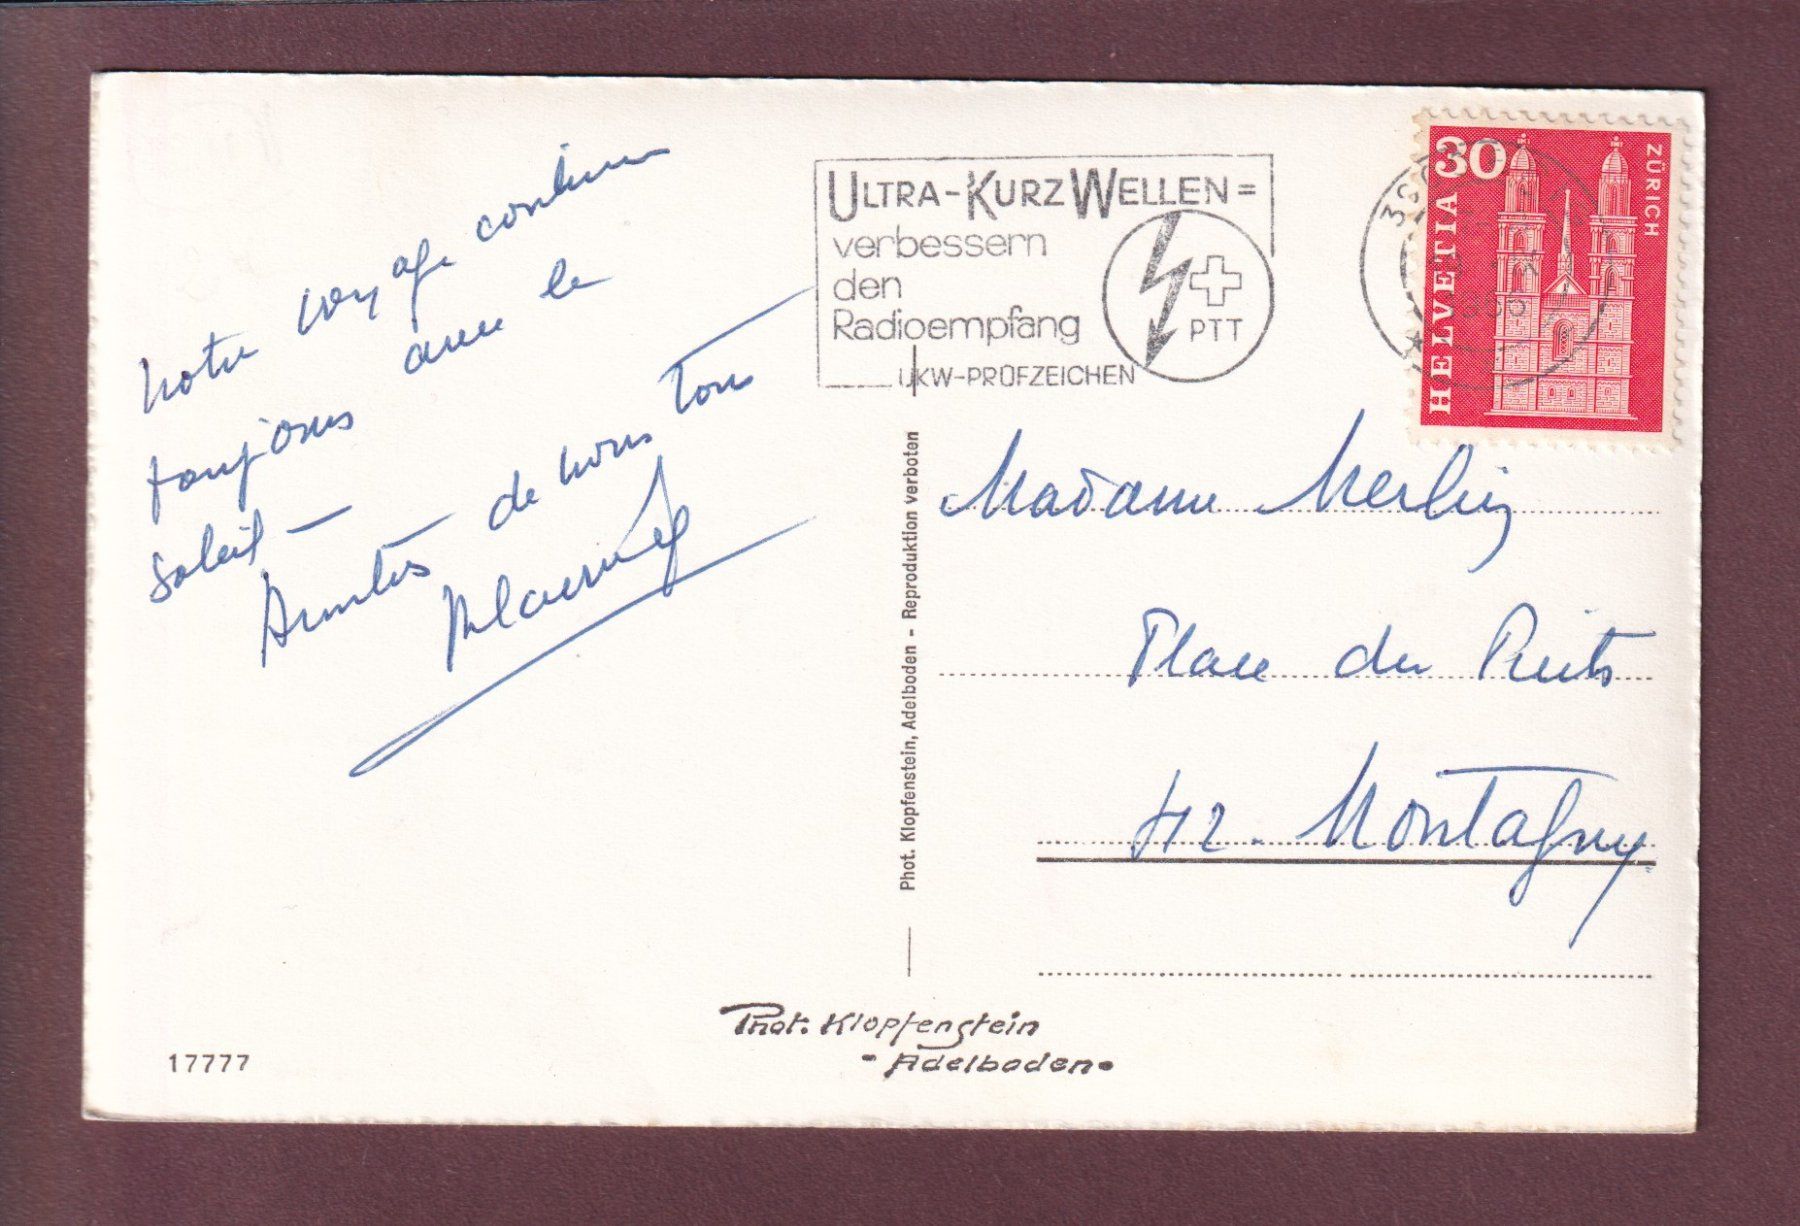 notre voyage continue
toujours avec le
soleil —
Amitiés de nous tous
ULTRA-KURZ WELLEN=
verbessern
den
Radioempfang
PTT
UKW-PRÜFZEICHEN
30
HELVETIA
ZÜRICH
Madame Merlin
Place du Puits
42. Montagny
Phot. Klopfenstein, Adelboden - Reproduktion verboten
Phot. Klopfenstein
- Adelboden -
17777